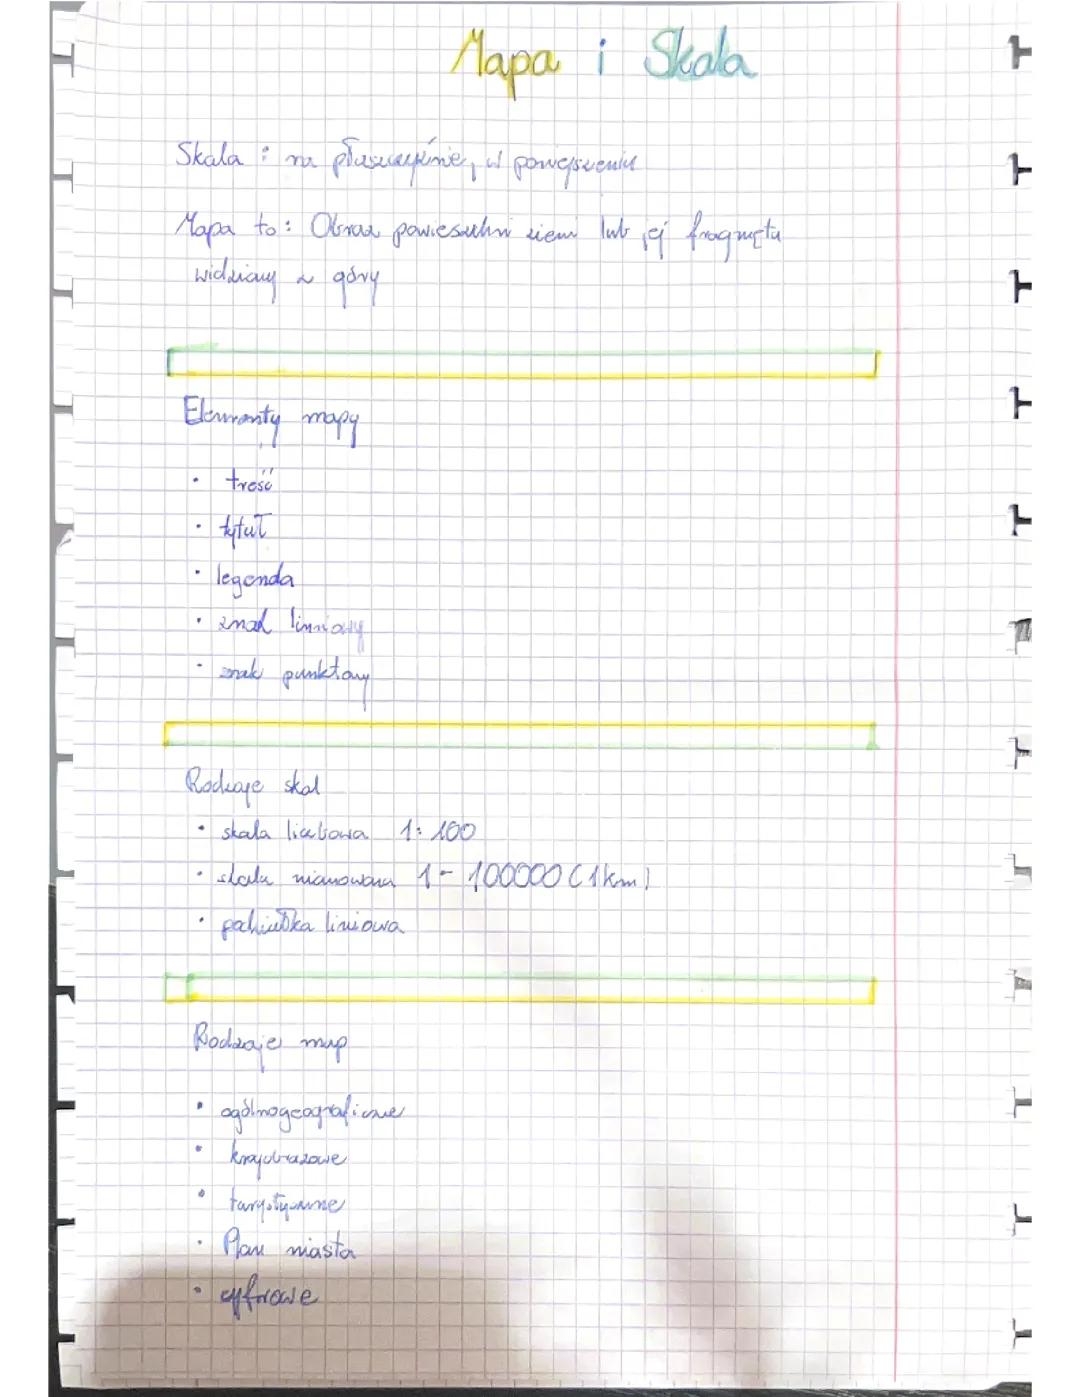 Mapa i Skala
Skala : na płaszczyźnie, w powięszeniu
Mapa to: Obraz powieszchni ziemi lub jej fragmętu
widziany z góry
Elementy mapy
• treść
• tytuł
• legenda
• znak linniowy
• znak punktowy
Rodzaje skal
• skala liczbowa 1: 100
• skala mianowana 1 - 100000 (1km)
• podziałka liniowa
Rodzaje map
• ogólnogeograficzne
• krajobrazowe
• turystyczne
• Plan miasta
• cyfrowe